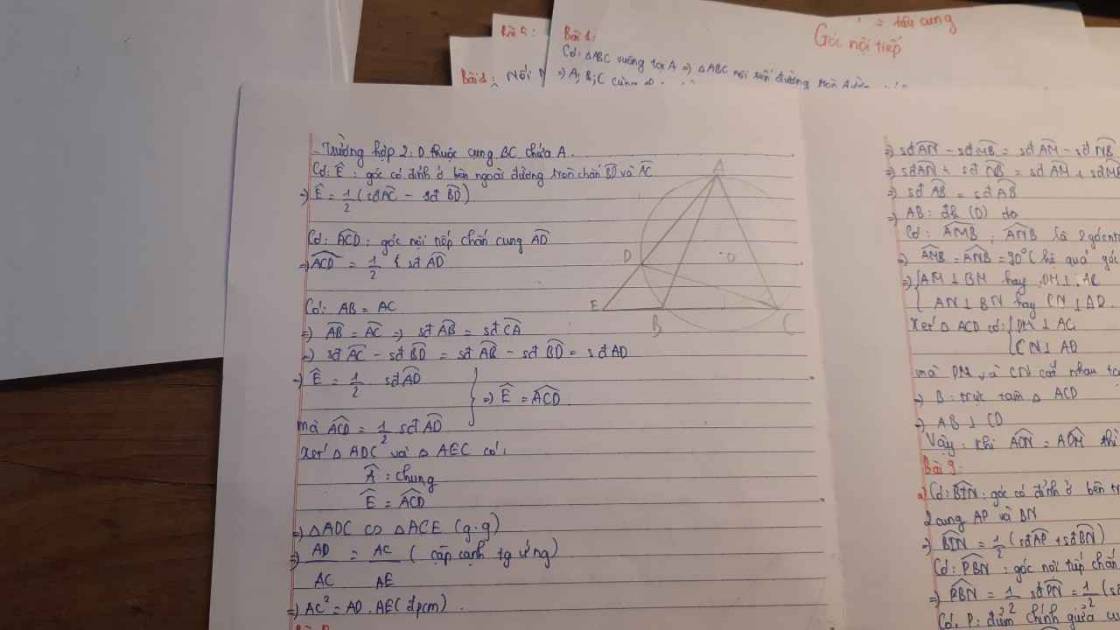 Góc nội tiếp
Bài 1:
Có: △ABC vuông tại A => △ABC nội tiếp đường tròn
=> A, B, C cùng
Bài 1: Nối
- Trường hợp 2: D thuộc cung BC chứa A.
Có: Ê: góc có đỉnh ở bên ngoài đường tròn chắn BD và AC
=> Ê = 1/2 (sđ AC - sđ BD)
Có: ACD: góc nội tiếp chắn cung AD
=> ACD = 1/2 sđ AD
Có: AB = AC
=> AB = AC => sđ AB = sđ CA
=> sđ AC - sđ BD = sđ AB - sđ BD = sđ AD
=> Ê = 1/2 sđ AD
=> Ê = ACD
mà ACD = 1/2 sđ AD
Xét △ ADC và △ AEC có:
Â: chung
Ê = ACD
=> △ADC ∽ △ACE (g.g)
=> AD/AC = AC/AE (cặp cạnh tg ứng)
=> AC² = AD. AE (đpcm).
A
D
O
E
B
C
=> sđ AN - sđ MB = sđ AM - sđ NB
=> sđ AN + sđ NB = sđ AM + sđ MB
=> sđ AB = sđ AB
=> AB: đk (O) do
Có: AMB, ANB là 2 góc nt
=> AMB = ANB = 90° (hệ quả góc
=> AM ⊥ BM hay DM ⊥ AC
AN ⊥ BN hay CN ⊥ AD.
Xét △ ACD có: DM ⊥ AC
CN ⊥ AD
mà DM và CN cắt nhau tại
=> B: trực tâm △ ACD
=> AB ⊥ CD
Vậy: khi
Bài 9:
a) Có: BIN: góc có đỉnh ở bên tr
2 cung AP và BN
=> BIN = 1/2 (sđ AP + sđ BN)
Có: PBN: góc nội tiếp chắn
=> PBN = 1/2 sđ PN = 1/2 (sđ
Có: P: điểm chính giữa cu